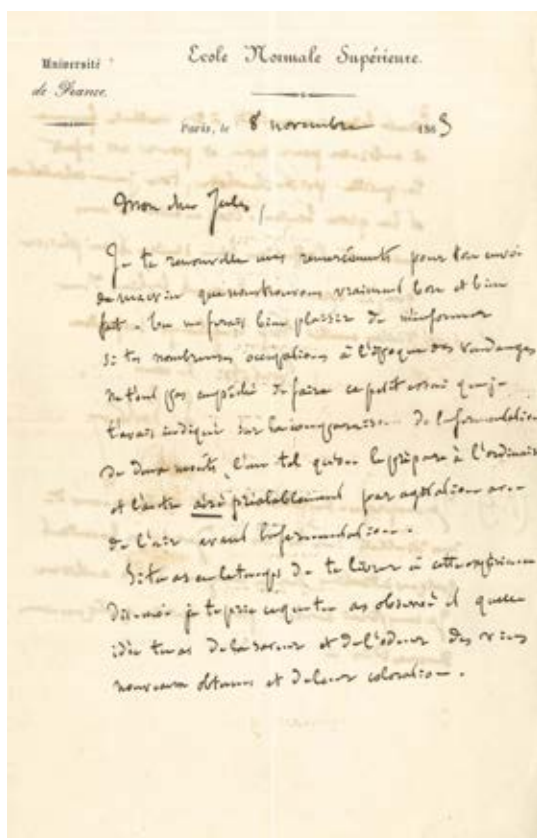 Université
de France.
Ecole Normale Supérieure.
Paris, le 8 novembre 1863
Mon cher Jules,
Je te renouvelle mes remerciements pour ton envoi
de ton vin que nous trouvons vraiment bon et bien
fait. Tu me ferais bien plaisir de m'informer
si tes nombreuses occupations à l'époque des vendanges
ne t'ont pas empêché de faire ce petit essai que je
t'avais indiqué sur la comparaison de la fermentation
de deux moûts, l'un tel qu'on le prépare à l'ordinaire
et l'autre aéré préalablement par agitation avec
de l'air avant la fermentation.
Si tu as eu le temps de te livrer à cette expérience
dis-moi je te prie ce que tu as observé et quelle
idée tu as de la saveur et de l'odeur des vins
nouveaux obtenus et de leur coloration.